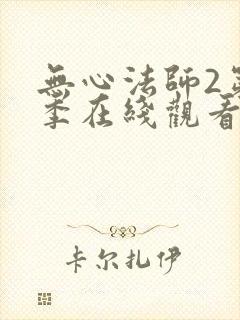 無心法師2
季在綫觀看
卡尔扎伊